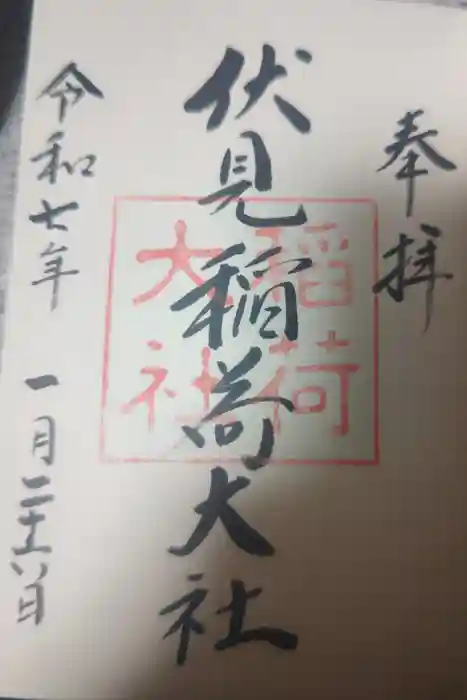 奉拝
伏見稲荷大社
稲荷
大社
令和七年 一月二十六日